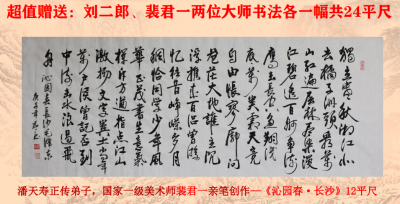 超值赠送：刘二郎、裴君一两位大师书法各一幅共24平尺
独立寒秋湘江北
去橘子洲头看万
山红遍层林尽染漫
江碧透百舸争流
鹰击长空鱼翔浅
底万类霜天竞
自由怅寥廓问
苍茫大地谁主沉
浮携来百侣曾游
忆往昔峥嵘岁月
稠恰同学少年风
华正茂书生意气
挥斥方遒指点江山
激扬文字粪土当年
万户侯曾记否到
中流击水浪遏飞
舟 沁园春长沙毛泽东
潘天寿正传弟子，国家一级美术师裴君一亲笔创作—《沁园春·长沙》12平尺